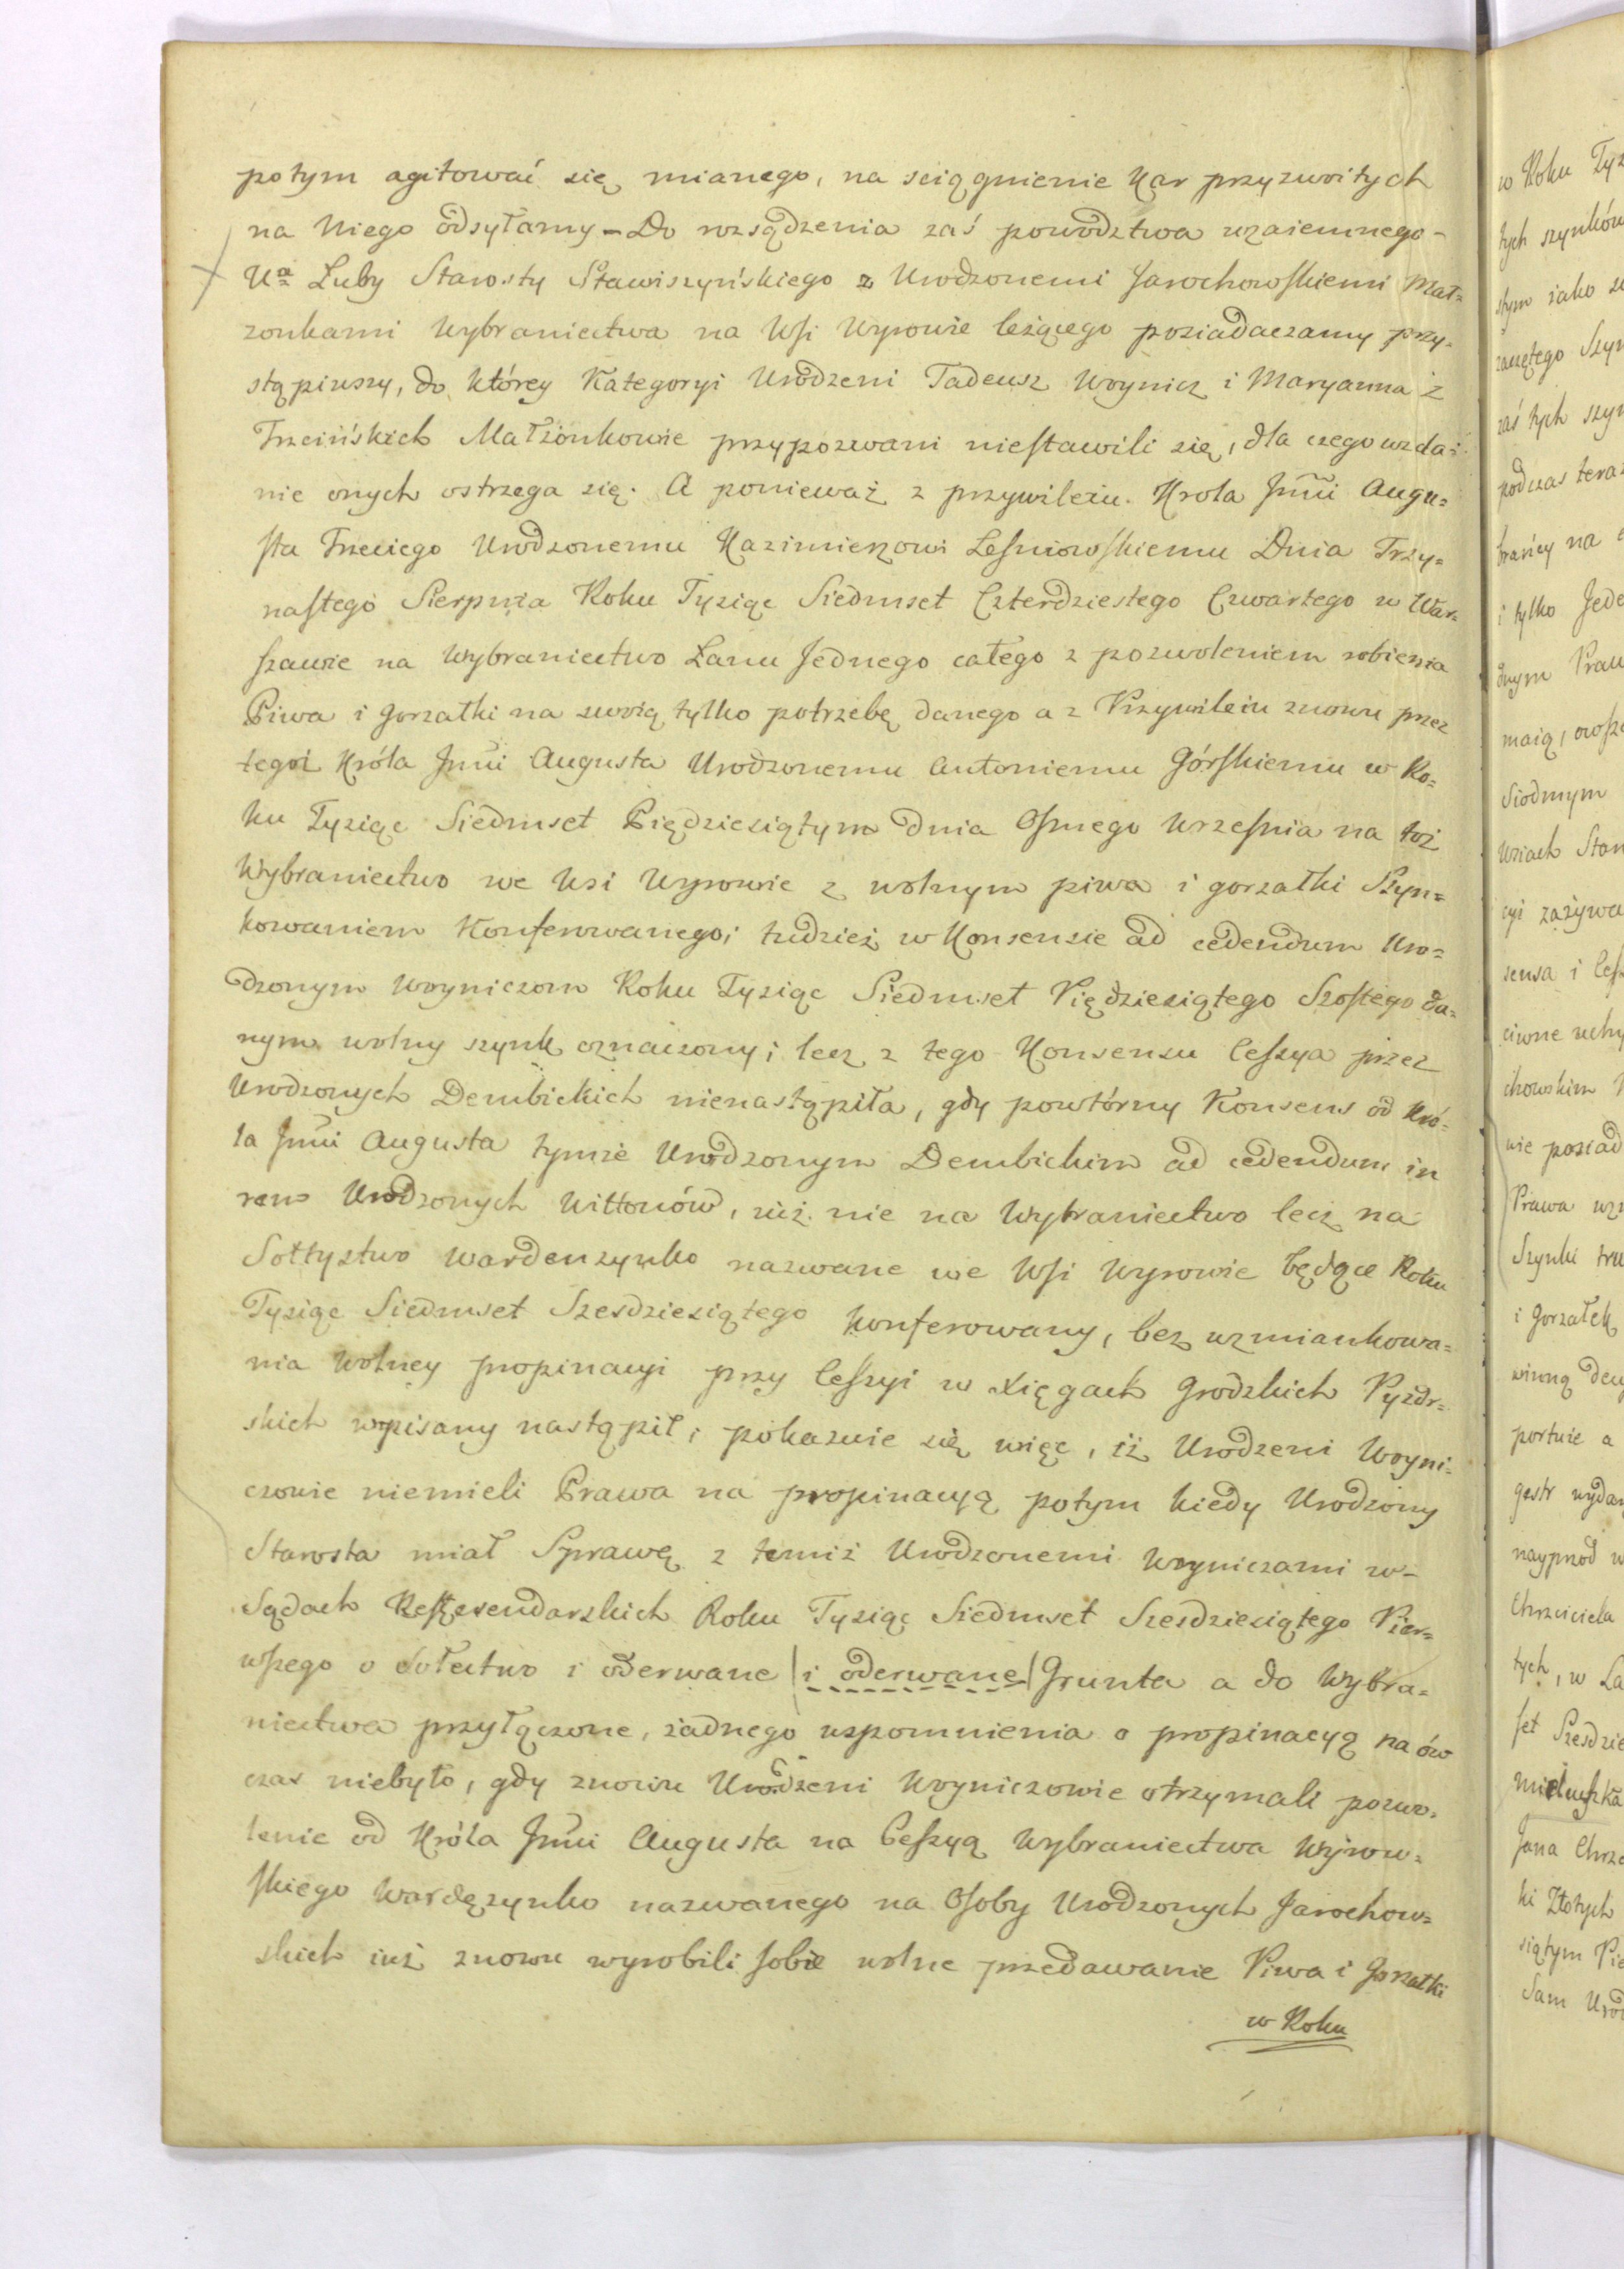 potym agitować się mianego, na sciągnienie Kar przyzwoitych
na Niego odsyłamy – Do rozsądzenia zaś powodztwa wzaiemnego –
Ua Luby Starosty Stawiszyńskiego z Urodzonemi Jarochowskiemi Mał=
zonkami Wybraniectwa na Wsi Wyrowie leżącego posiadaczamy przy=
stąpiwszy, do którey Kategoryi Urodzeni Tadeusz Woynicz i Maryanna z
Trzcińskich Małżonkowie przypozwani niestawili się, dla czego wzda=
nie onych ostrzega się. A ponieważ z przywileiu Krola Jmci Augu=
sta Trzeciego Urodzonemu Kazimierzowi Lesniowskiemu Dnia Trzy=
nastego Sierpnia Roku Tysiąc Siedmset Czterdziestego Czwartego w War=
szawie na Wybraniectwo Łanu Jednego całego z pozwoleniem robienia
Piwa i gorzałki na swoią tylko potrzebę danego a z Przywileiu znowu przez
tegoż Króla Jmci Augusta Urodzonemu Antoniemu Górskiemu w Ro=
ku Tysiąc Siedmset Piędziesiątym dnia Osmego Wrzesnia na toż
Wybraniectwo we Wsi Wyrowie z wolnym piwa i gorzałki Szyn=
kowaniem Konferowanego; tudzież w Konsensie ad cedendum Uro=
dzonym Woyniczom Roku Tysiąc Siedmset Pięćdziesiątego Szostego da=
nym wolny szynk oznaczony; lecz z tego Konsensu Cessya przez
Urodzonych Dembickich nienastąpiła, gdy powtórny Konsens od Kró=
la Jmci Augusta tymże Urodzonym Dembickim ad cedendum in
rem Urodzonych Wittonów, już nie na Wybraniectwo lecz na
Sołtystwo Wardenzynko nazwane we Wsi Wyrowie będące Roku
Tysiąc Siedmset Szesdziesiątego konferowany, bez wzmiankowa=
nia wolney propinacyi przy Cessyi w Xięgach Grodzkich Pyzdr=
skich wpisany nastąpił; pokazuie się więc, iż Urodzeni Woyni=
czowie niemieli Prawa na propinacyą potym kiedy Urodzony
Starosta miał Sprawę z temiż Urodzonemi Woyniczami w –
Sądach Referendarzkich Roku Tysiąc Siedmset Szesdziesiątego Pier=
wszego o sołectwo i oderwane | i oderwane | Grunta a do Wybra=
niectwa przyłączone, żadnego wspomnienia o propinacyą na ów
czas niebyło, gdy znowu Urodzeni Woyniczowie otrzymali pozwo=
lenie od Króla Jmci Augusta na Cessyą Wybraniectwa Wyrow=
skiego Wardęzynko nazwanego na Osoby Urodzonych Jarochow=
skich iuż znowu wyrobili sobie wolne przedawanie Piwa i Gorzałki
w Roku